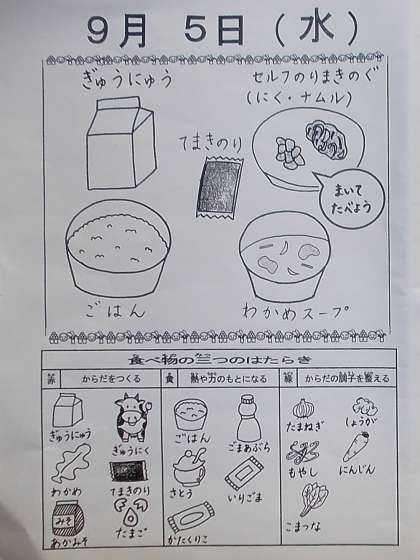 9月 5日(水)
ぎゅうにゅう
セルフのりまきのぐ
(にく・ナムル)
てまきのり
まいて
たべよう
ごはん
わかめスープ
食べ物の三つのはたらき
赤 からだをつくる
黄 熱や力のもとになる
緑 からだの調子を整える
ぎゅうにゅう
ぎゅうにく
わかめ
てまきのり
みそ
あかみそ
たまご
ごはん
ごまあぶら
さとう
いりごま
かたくりこ
たまねぎ
しょうが
もやし
にんじん
こまつな